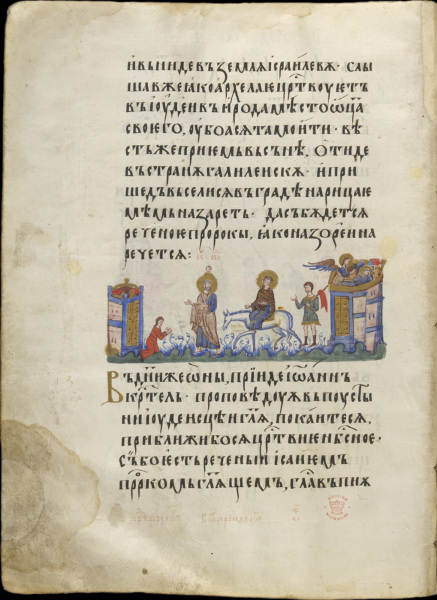 и вьниде въ землѧ ісраилевѫ· слы
шавже ꙗко архелае цр҃твоуетъ
въ іоуден въ ирода мѣсто ѡц҃а
своего, оубоасѧ тамо ити· вѣ
стьже приемь въ сънѣ, ѿиде
въ странѫ галилеискѫ· и при
шедъ въселисѧ въ градѣ нарицаю
мѣмь назареть· да събѫдетсѧ
реченое пророкы, ꙗко назорен на
речетсѧ:
Въ дн҃иже ѡны, пріиде іѡаннъ
кр҃тель· проповѣдоуѫ въ поусты
ни іоуденсцѣи и гл҃ѧ, покаитесѧ,
приближибосѧ цр҃твие нб҃сное·
съ бо естъ реченыи ісаіемъ
пр҃ркомь гл҃ѧщемъ, гла҃ въпиѫ